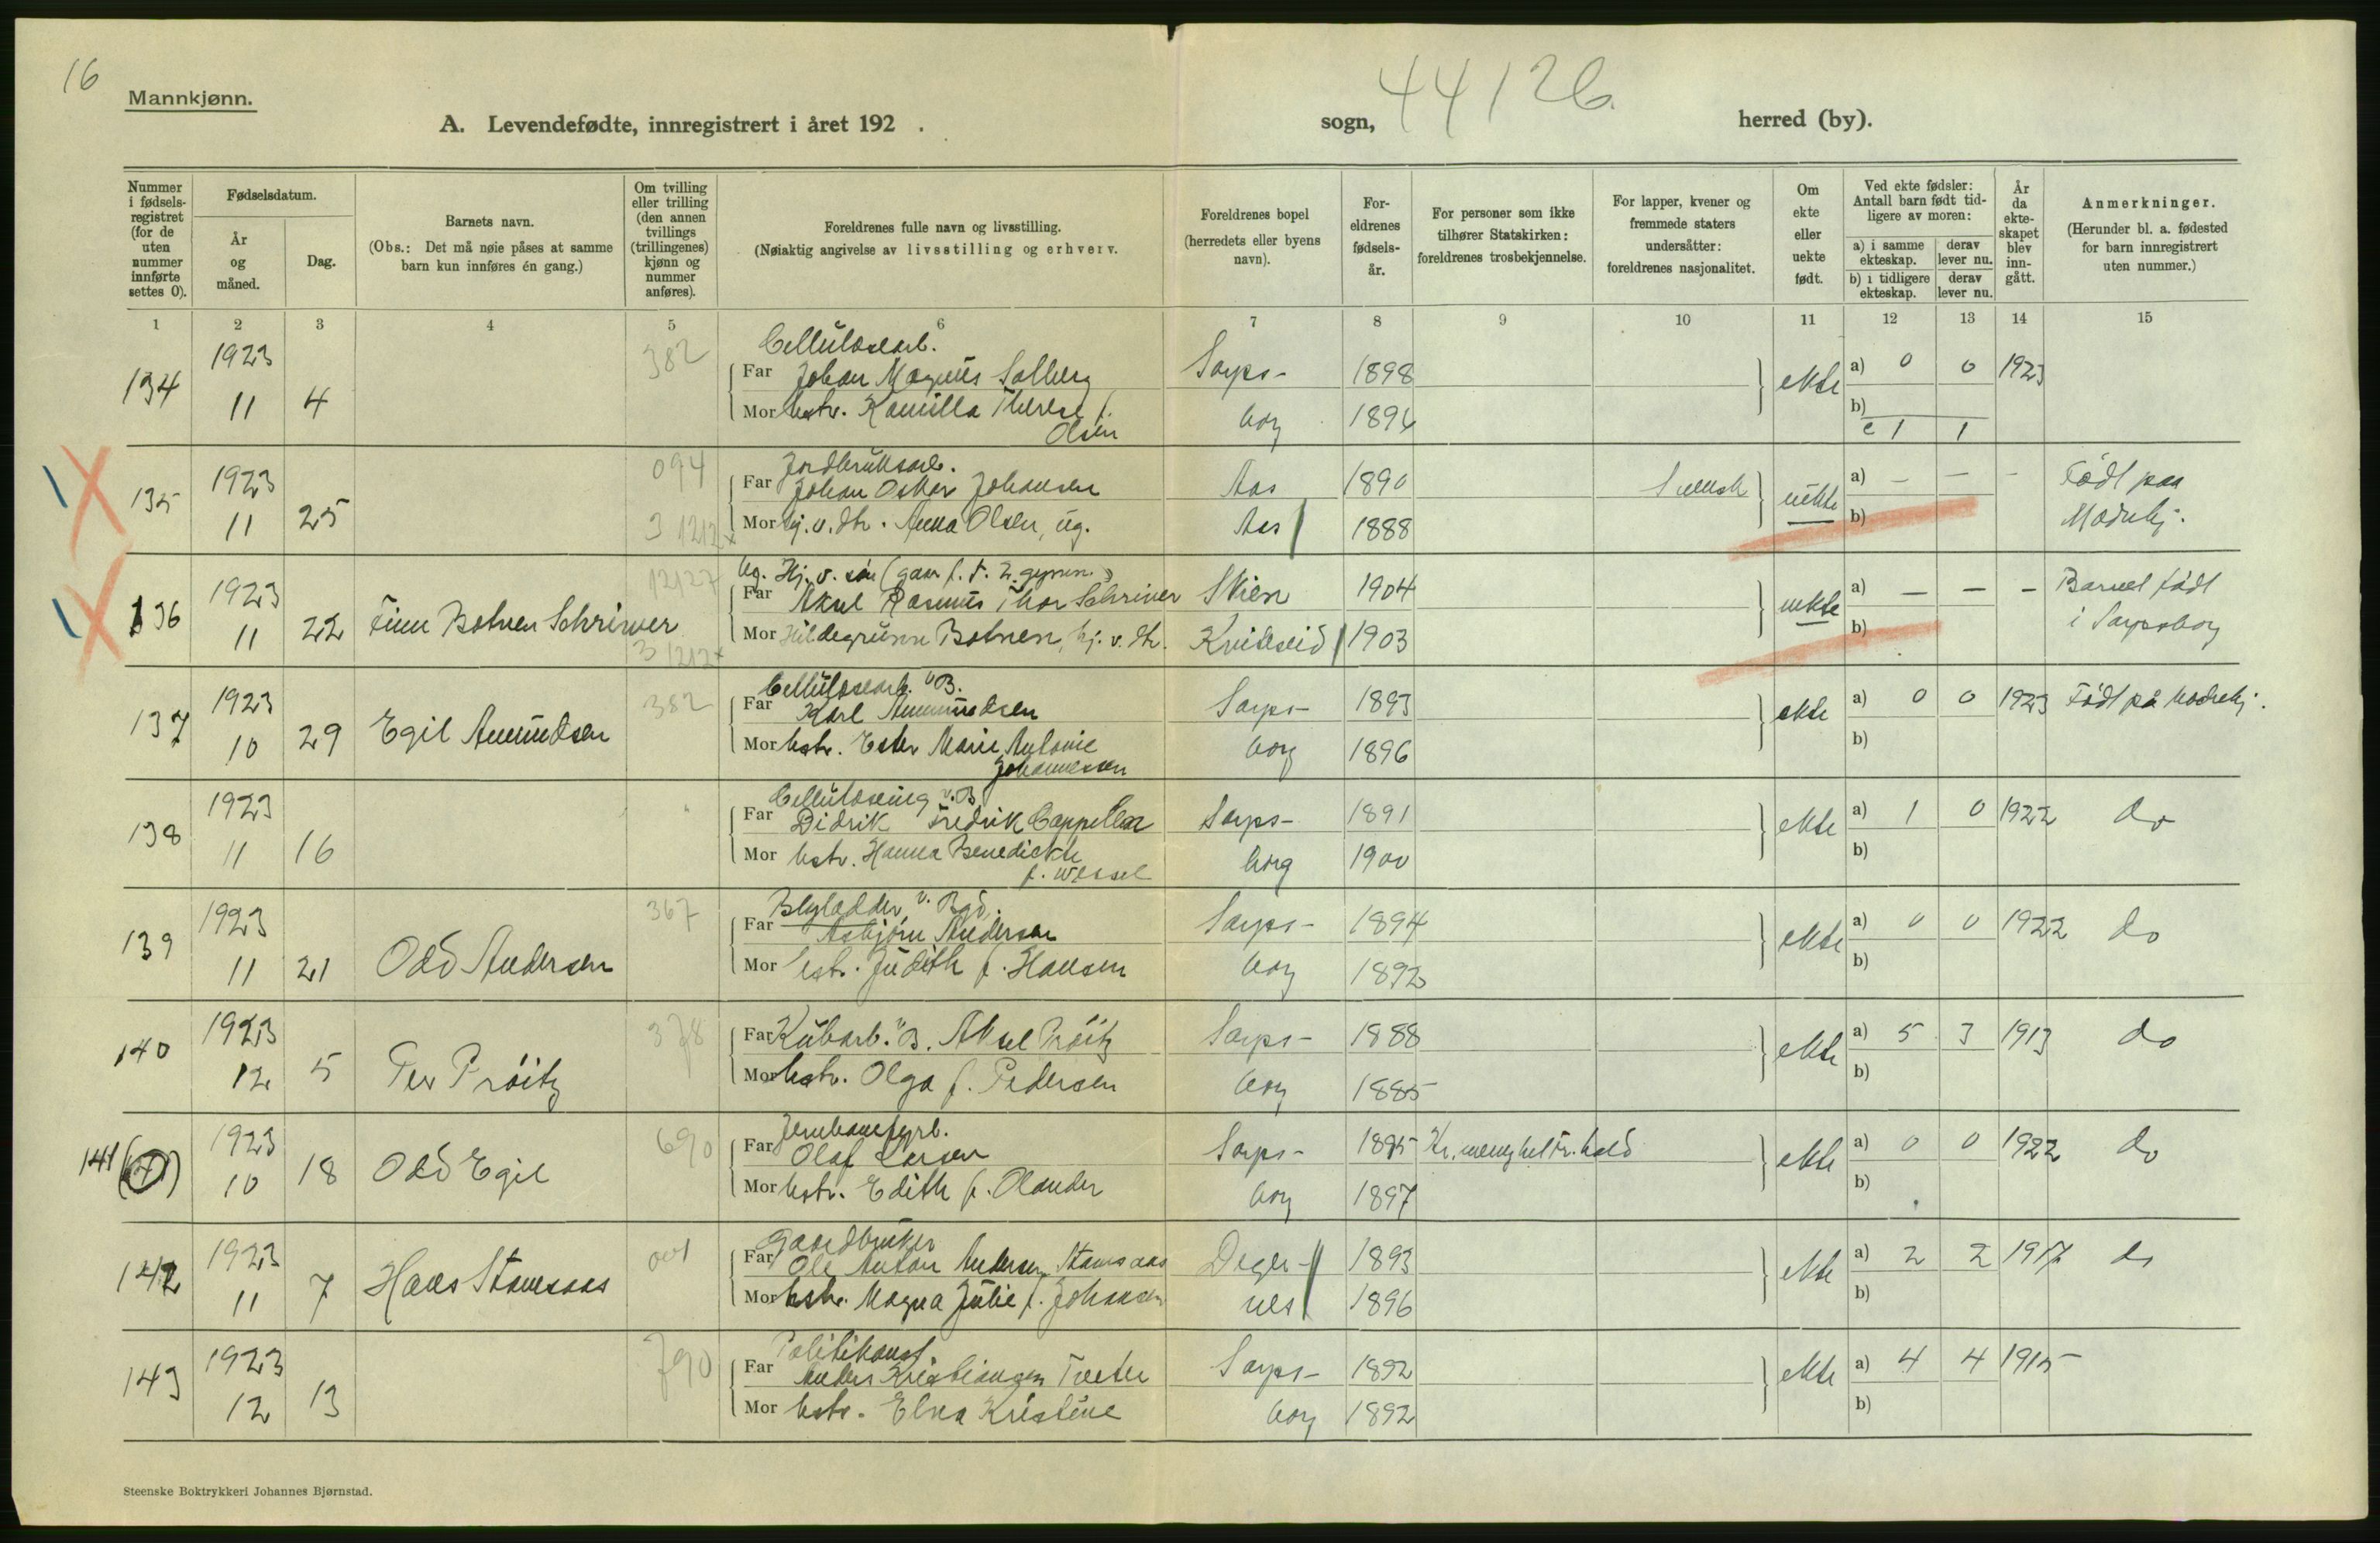 16
Mannkjønn.
A. Levendefødte, innregistrert i året 192 .
sogn,
44126
herred (by).
Nummer i fødsels-registret (for de uten nummer innførte settes 0).
Fødselsdatum.
År og måned.
Dag.
Barnets navn.
(Obs.: Det må nøie påses at samme barn kun innføres én gang.)
Om tvilling eller trilling (den annen tvillings (trillingenes) kjønn og nummer anføres).
Foreldrenes fulle navn og livsstilling.
(Nøiaktig angivelse av livsstilling og erhverv.
Foreldrenes bopel (herredets eller byens navn).
For-eldrenes fødsels-år.
For personer som ikke tilhører Statskirken: foreldrenes trosbekjennelse.
For lapper, kvener og fremmede staters undersåtter: foreldrenes nasjonalitet.
Om ekte eller uekte født.
Ved ekte fødsler: Antall barn født tid-ligere av moren:
a) i samme ekteskap.
derav lever nu.
b) i tidligere ekteskap.
derav lever nu.
År da ekte-skapet blev inn-gått.
Anmerkninger.
(Herunder bl. a. fødested for barn innregistrert uten nummer.)
1 2 3 4 5 6 7 8 9 10 11 12 13 14 15
134 1923 11 4 382
Cellulosearb.
Far Johan Magnus Solberg Sarps- 1898 ekte a) 0 0 1923
Mor hstr. Kamilla Therese f. Olsen borg 1894 b) e 1 1
135 1923 11 25 094 3 1212x
Jordbruksarb.
Far Johan Oskar Johansen Aas 1890 Svensk uekte a) - - - Født paa
Mor hj. v. dtr. Anna Olsen, ug. Aas 1888 b) Mødrehj.
136 1923 11 22 Finn Botnen Schriwer 12127 3 1212x
ug. Hj. v. søn (gaar f. t. gymn.)
Far Aksel Rasmus Thor Schriver Skien 1904 uekte a) - - - Barnet født
Mor Hildegrunn Botnen, hj. v. dtr. Kviteseid 1903 b) i Sarpsborg
137 1923 10 29 Egil Amundsen 382
Cellulosearb. v B.
Far Karl Ammundsen Sarps- 1893 ekte a) 0 0 1923 Født på Mødrehj.
Mor hstr. Ester Marie Antonie Johannessen borg 1896 b)
138 1923 11 16 "
Celluloseing v. B
Far Didrik Fredrik Cappelen Sarps- 1891 ekte a) 1 0 1922 do
Mor hstr. Hanna Benedickte f. Wessel borg 1900 b)
139 1923 11 21 Odd Andersen 367
Blylodder v.
Far Asbjørn Andersen Sarps- 1894 ekte a) 0 0 1922 do
Mor hstr. Judith f. Hansen borg 1892 b)
140 1923 12 5 Per Prøitz 378
Far Kubarb. v B. Aksel Prøitz Sarps- 1888 ekte a) 5 3 1913 do
Mor hstr. Olga f. Pedersen borg 1885 b)
141 1923 10 18 Odd Egil 690
Far Olaf Larsen Sarps- 1895 ekte a) 0 0 1922 do
Mor hstr. Edith f. Olander borg 1897 b)
142 1923 11 7 Hans Stamsaas 001
Gaardbruker
Far Ole Anton Andersen Stamsaas Deger- 1893 ekte a) 2 2 1917 do
Mor hstr. Magna Julie f. Johansen nes 1896 b)
143 1923 12 13 790
Politikonst.
Far Anders Kristiansen Tveter Sarps- 1892 ekte a) 4 4 1915
Mor hstr. Elna Kristine borg 1892 b)
Steenske Boktrykkeri Johannes Bjørnstad.